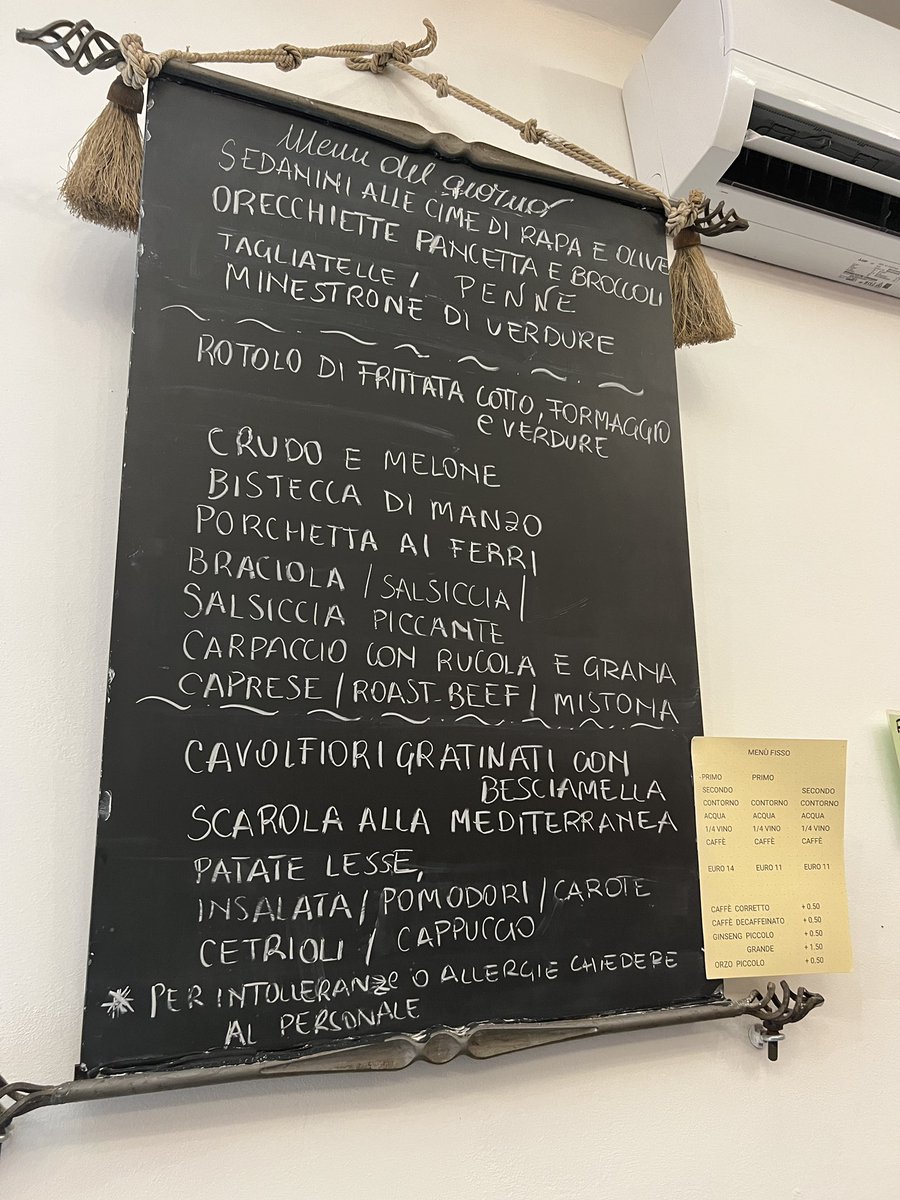 Menu del giorno
SEDANINI ALLE CIME DI RAPA E OLIVE
ORECCHIETTE PANCETTA E BROCCOLI
TAGLIATELLE / PENNE
MINESTRONE DI VERDURE
ROTOLO DI FRITTATA COTTO, FORMAGGIO
e VERDURE
CRUDO E MELONE
BISTECCA DI MANZO
PORCHETTA AI FERRI
BRACIOLA / SALSICCIA /
SALSICCIA PICCANTE
CARPACCIO CON RUCOLA E GRANA
CAPRESE / ROAST-BEEF / MISTONA
CAVOLFIORI GRATINATI CON
BESCIAMELLA
SCAROLA ALLA MEDITERRANEA
PATATE LESSE,
INSALATA / POMODORI / CAROTE
CETRIOLI / CAPPUCCIO
* PER INTOLLERANZE O ALLERGIE CHIEDERE
AL PERSONALE
MENÙ FISSO
-PRIMO PRIMO
SECONDO SECONDO
CONTORNO CONTORNO CONTORNO
ACQUA ACQUA ACQUA
1/4 VINO 1/4 VINO 1/4 VINO
CAFFÈ CAFFÈ CAFFÈ
EURO 14 EURO 11 EURO 11
CAFFÈ CORRETTO + 0.50
CAFFÈ DECAFFEINATO + 0.50
GINSENG PICCOLO + 0.50
GRANDE + 1.50
ORZO PICCOLO + 0.50